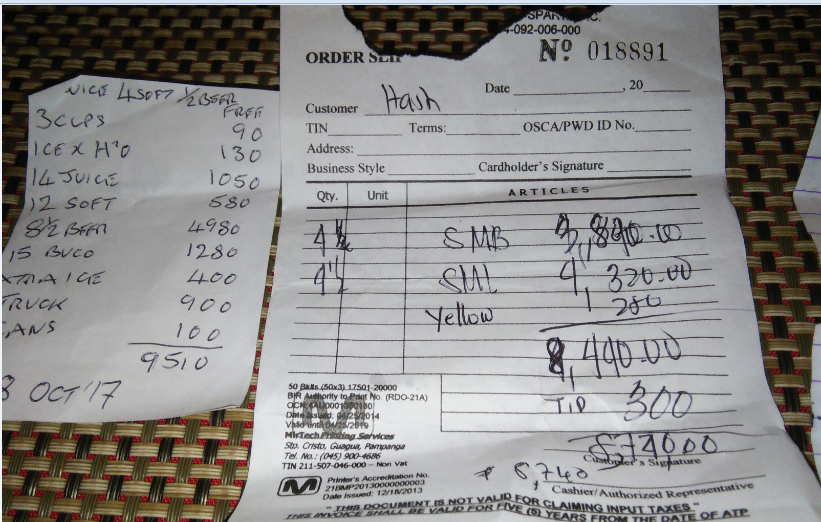 NICE 4 SOFT 1/2 BEER
FREE
3 CUPS 90
ICE X H2O 130
14 JUICE 1050
12 SOFT 580
8 1/2 BEER 4980
15 BUCO 1280
XTRA ICE 400
TRUCK 900
ANS 100
9510
8 OCT '17
SPAR INC.
4-092-006-000
ORDER SLIP
Nº 018891
Date , 20
Customer Hash
TIN Terms: OSCA/PWD ID No.
Address:
Business Style Cardholder's Signature
Qty. Unit ARTICLES
4 SMB 3,890.00
4 1/2 SML 4,320.00
Yellow 280
8,440.00
TIP 300
8,740.00
Customer's Signature
₱ 8,740
Cashier/Authorized Representative
50 Bklts. (50x3) 17501-20000
BIR Authority to Print No. (RDO-21A)
Date Issued: 04/25/2014
Valid until 04/25/2019
MirTech Printing Services
Sto. Cristo, Guagua, Pampanga
Tel. No.: (045) 900-4686
TIN 211-507-046-000 - Non Vat
Printer's Accreditation No.
21BMP20130000000003
Date Issued: 12/18/2013
"THIS DOCUMENT IS NOT VALID FOR CLAIMING INPUT TAXES"
THIS INVOICE SHALL BE VALID FOR FIVE (5) YEARS FROM THE DATE OF ATP